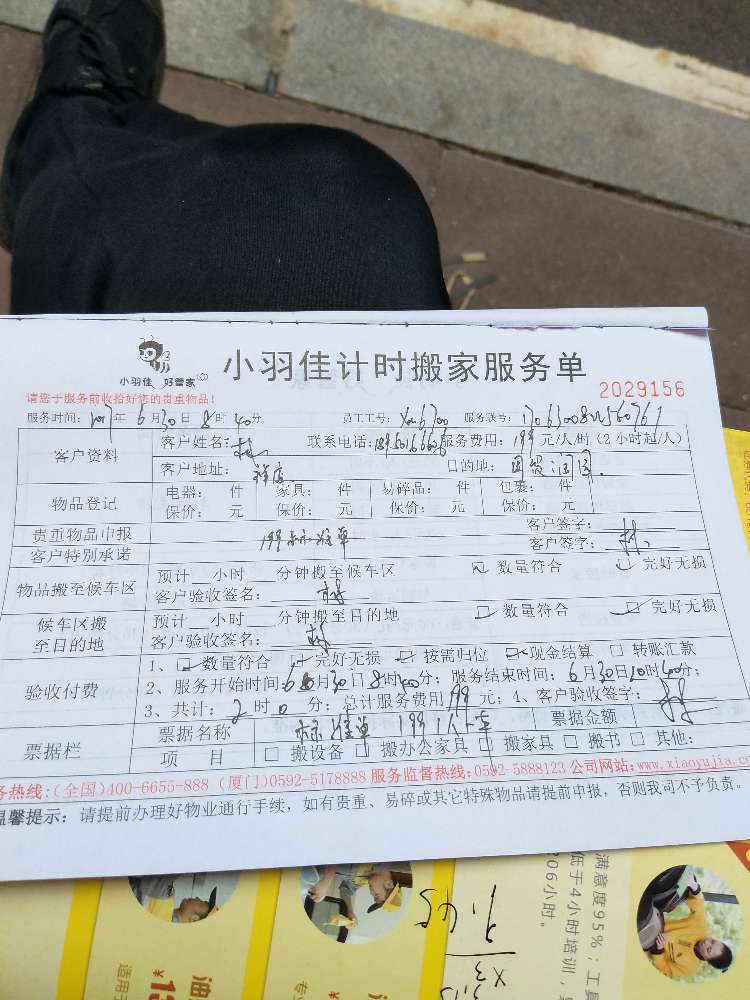 小羽佳 好管家
小羽佳计时搬家服务单
请您于服务前收拾好您的贵重物品!
2029156
服务时间: 2017年6月30日8时40分 员工工号: 服务联号:
客户资料 客户姓名: 林 联系电话: 服务费用: 199元/人/时(2小时起/人)
客户地址: 祥店 目的地: 国贸润园
物品登记 电器: 件 家具: 件 易碎品: 件 包裹: 件
保价: 元 保价: 元 保价: 元 保价: 元
贵重物品申报 客户签字:
客户特别承诺 199标准单 客户签字: 林
物品搬至候车区 预计__小时___分钟搬至候车区 数量符合 完好无损
客户验收签名: 林
候车区搬至目的地 预计__小时___分钟搬至目的地 数量符合 完好无损
客户验收签名: 林
验收付费 1、 数量符合 完好无损 按需归位 现金结算 转账汇款
2、服务开始时间: 6月30日8时40分; 服务结束时间: 6月30日10时40分;
3、共计: 2时0分; 总计服务费用199元; 4、客户验收签字: 林
票据栏 票据名称 标准单 199 1人1车 票据金额
项 目 搬设备 搬办公家具 搬家具 搬书 其他:
务热线:(全国)400-6655-888 (厦门)0592-5178888 服务监督热线:0592-5888123 公司网站:www.xiaoyujia.co
温馨提示: 请提前办理好物业通行手续, 如有贵重、易碎或其它特殊物品请提前申报, 否则我司不予负责。
满意度95%; 工具
低于4小时培训,
206小时。